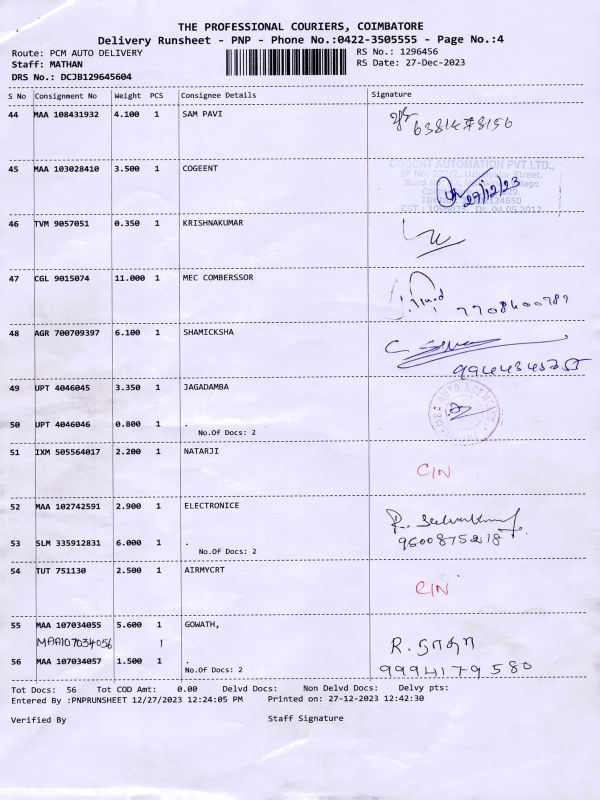 THE PROFESSIONAL COURIERS, COIMBATORE
Delivery Runsheet - PNP - Phone No.:0422-3505555 - Page No.:4
Route: PCM AUTO DELIVERY RS No.: 1296456
Staff: MATHAN RS Date: 27-Dec-2023
DRS No.: DCJB129645604
S No Consignment No Weight PCS Consignee Details Signature
44 MAA 108431932 4.100 1 SAM PAVI
45 MAA 103028410 3.500 1 COGEENT
COGENT AUTOMATION PVT LTD.,
27/12/23
46 TVM 9057051 0.350 1 KRISHNAKUMAR
47 CGL 9015074 11.000 1 MEC COMBERSSOR
7708400789
48 AGR 700709397 6.100 1 SHAMICKSHA
9944343755
49 UPT 4046045 3.350 1 JAGADAMBA
50 UPT 4046046 0.800 1 .
No.Of Docs: 2
51 IXM 505564017 2.200 1 NATARJI
C/N
52 MAA 102742591 2.900 1 ELECTRONICE
9600875218
53 SLM 335912831 6.000 1 .
No.Of Docs: 2
54 TUT 751130 2.500 1 AIRMYCRT
C/N
55 MAA 107034055 5.600 1 GOWATH,
MAA107034056 1
R.
56 MAA 107034057 1.500 1 .
No.Of Docs: 2
9994179580
Tot Docs: 56 Tot COD Amt: 0.00 Delvd Docs: Non Delvd Docs: Delvy pts:
Entered By :PNPRUNSHEET 12/27/2023 12:24:05 PM Printed on: 27-12-2023 12:42:30
Verified By Staff Signature